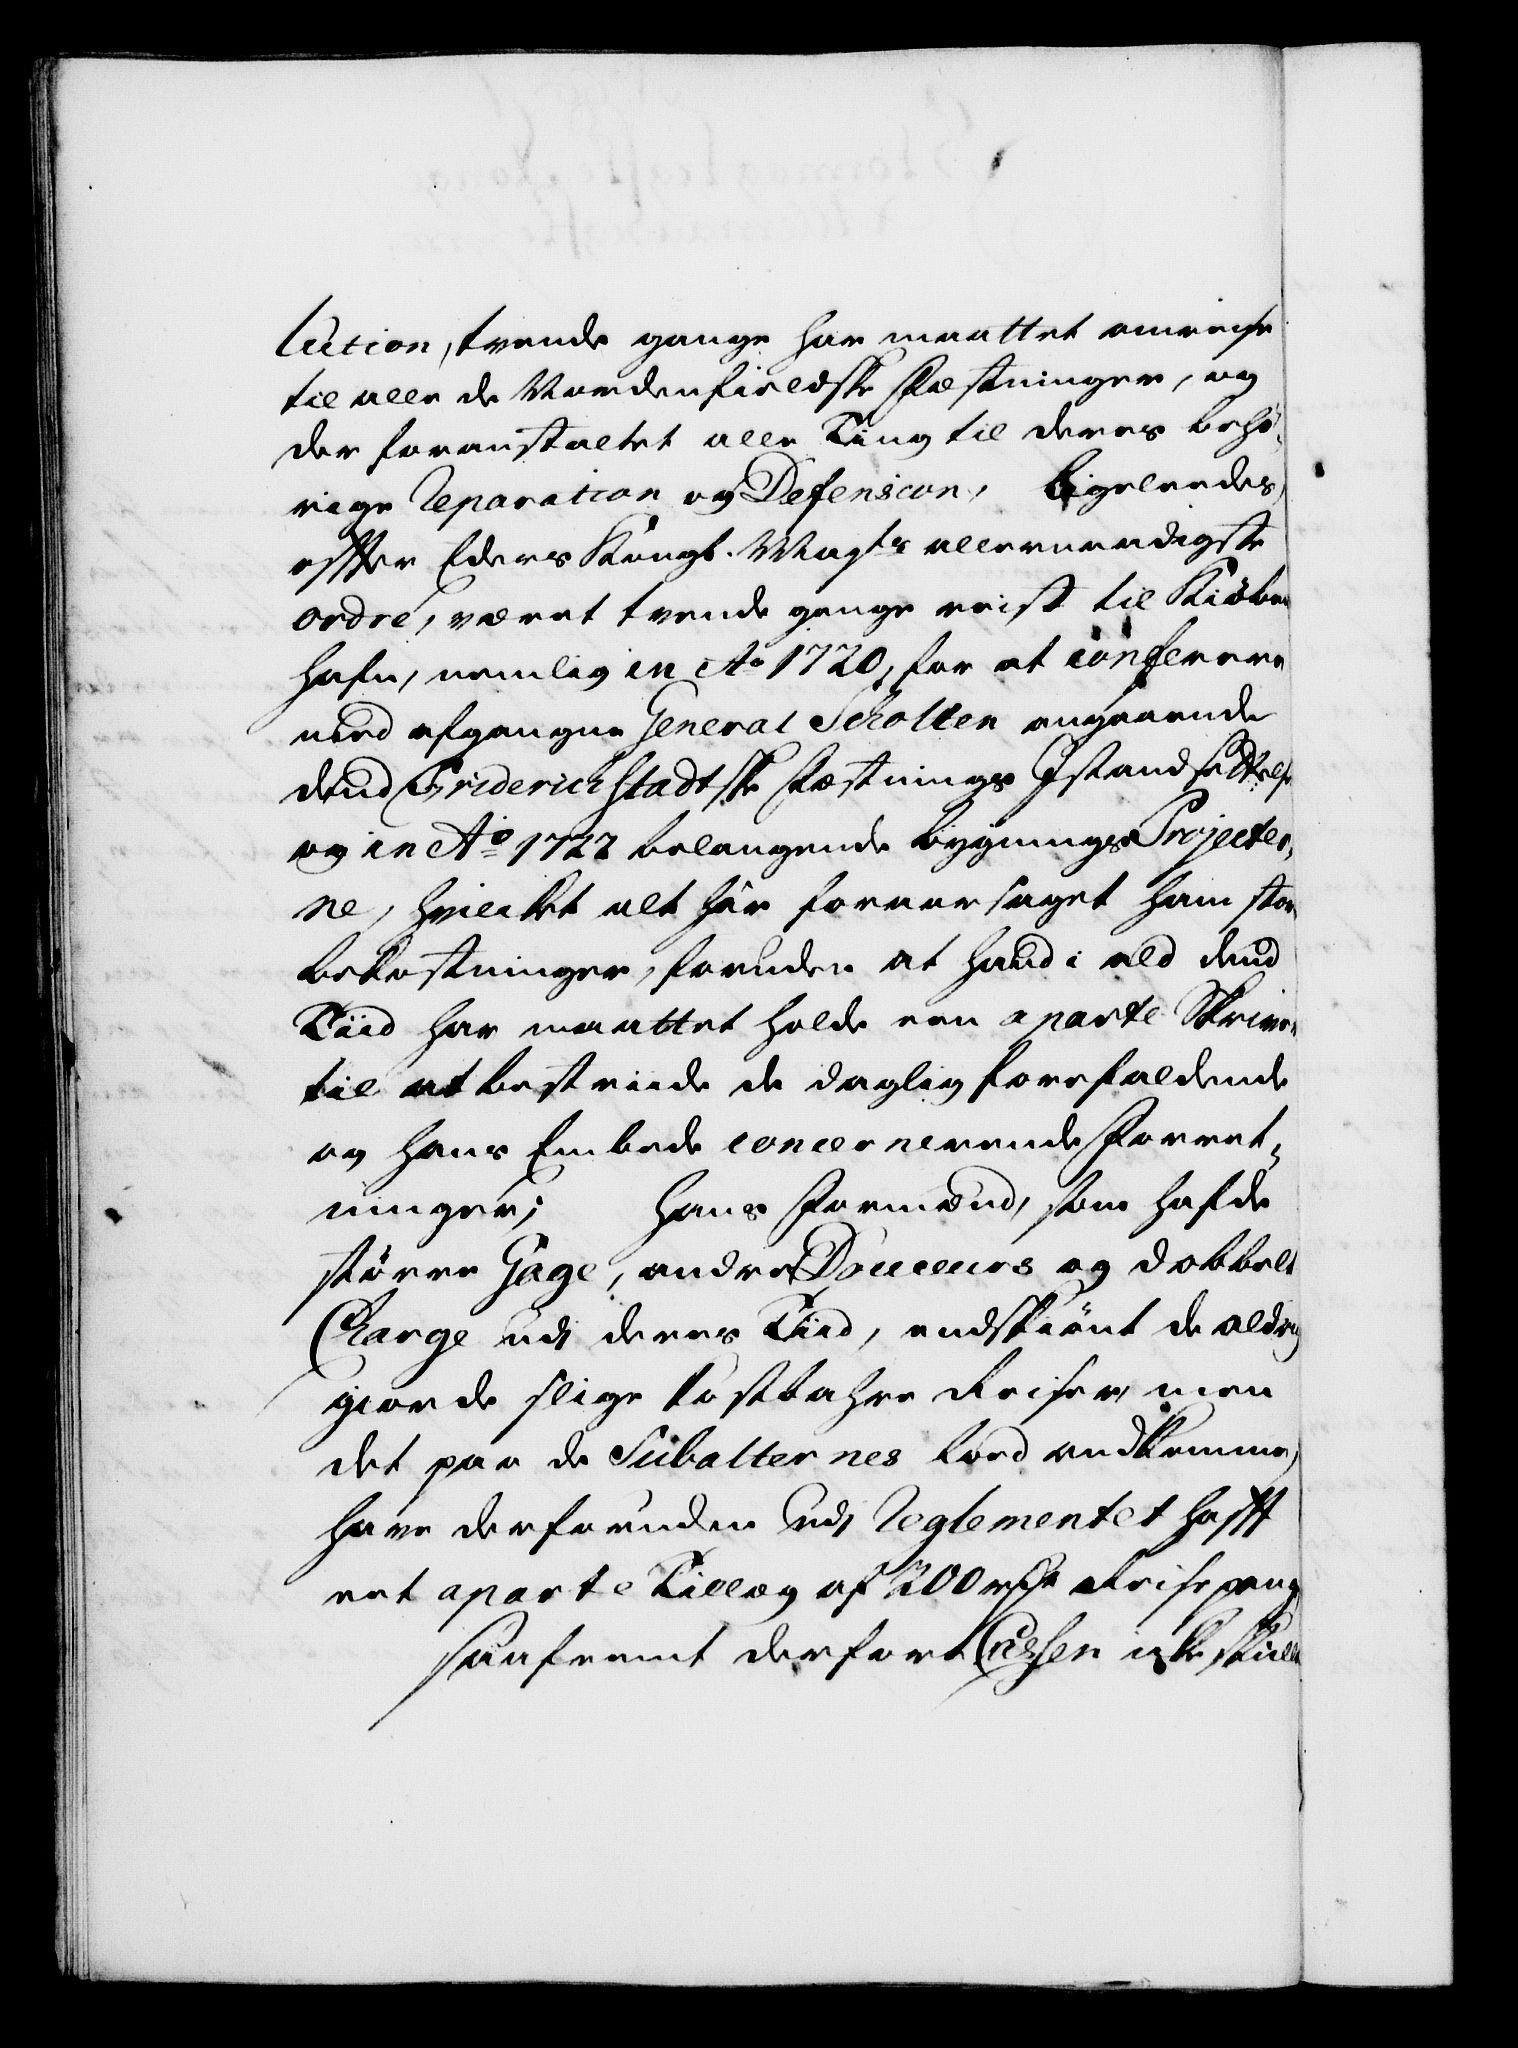 lution, tvende gange har maattet omreise
til alle de Nordenfieldske Fæstninger, og
der foranstaltet alle Ting til deres behö-
rige Reparation og Defension, Ligeleedes,
effter Eders Kongl. Mayts allernaadigste
ordre, været tvende gange reist til Kiöben
hafn, nemlig in Ao 1720, for at conferere
med afgangne General Scholten angaaende
dend Friderichstadtske Fæstnings Istandsættelse
og in Ao 1722 belangende bygnings Projecter-
ne, hvilcket alt har foraarsaget ham store
bekostninger, foruden at hand i ald dend
Tiid har maattet holde een aparte Skriver
til at bestriide de daglig forefaldende
og hans Embede concernerende Forret-
ninger; Hans Formænd, som hafde
större Gage, andre Douceurs og dobbelt
Charge udi deres Tiid, endskiönt de aldrig
giorde slige kostbahre Reiser, men
det paa de Subalternes lod ankomme,
have derforuden udi Reglementet hafft
eet aparte Tillæg af 200 rdr Reisepeng
saafremt derfor Cuesen icke skulle